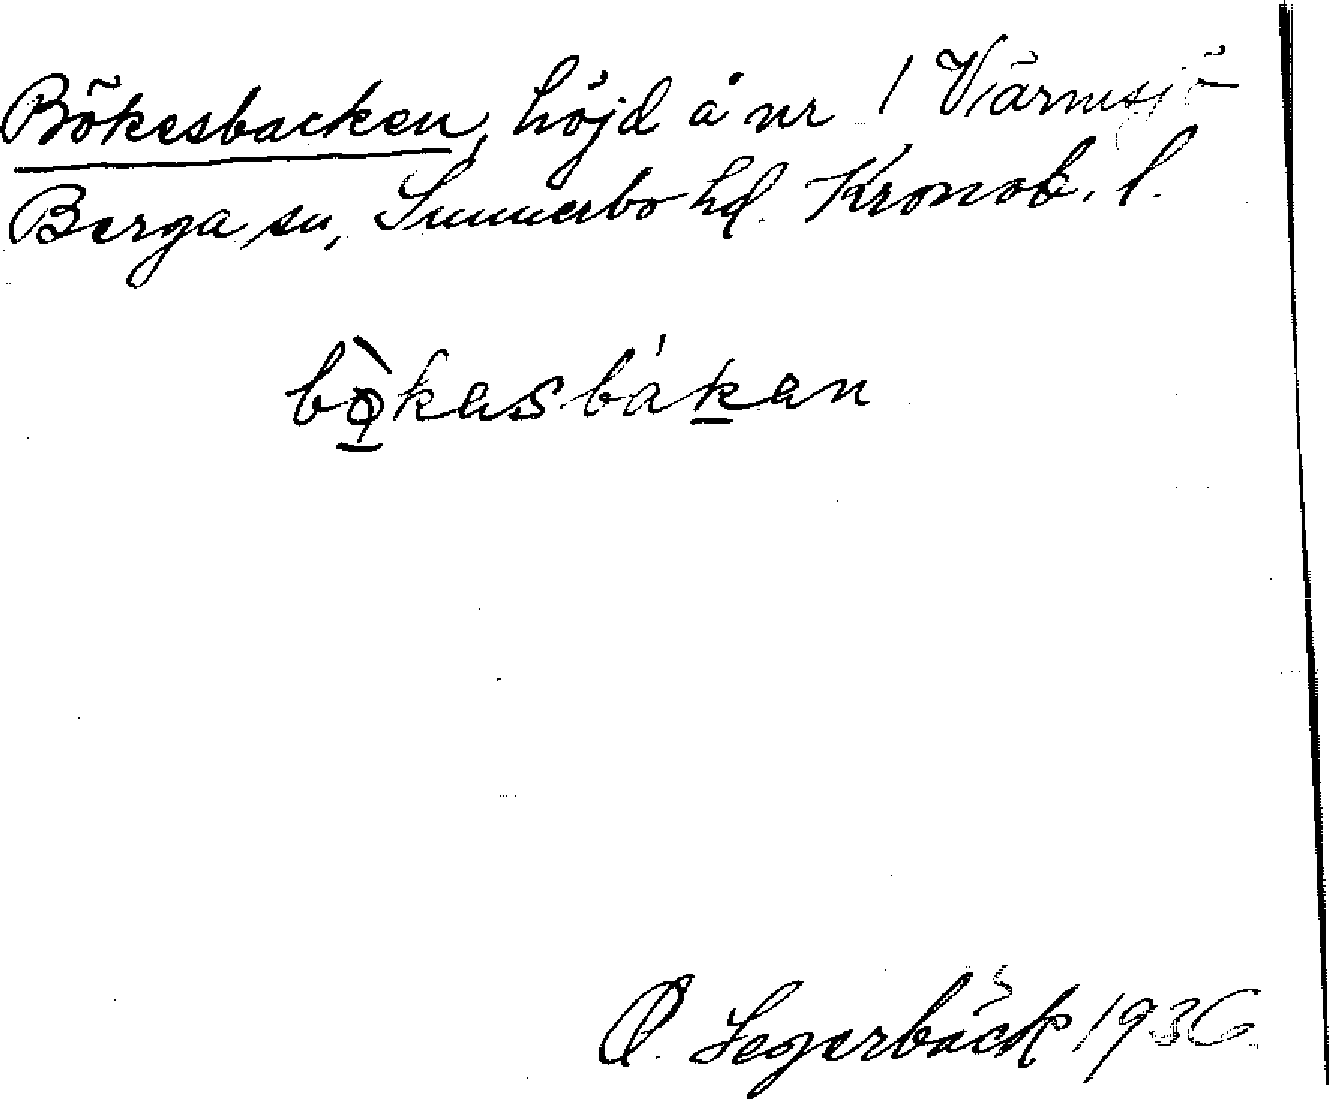 Bökesbacken, höjd å nr 1 Värmsjö
Berga sn, Sunnerbo hd. Kronob. l.
bø̀kasbákan
Segerbäck 1936